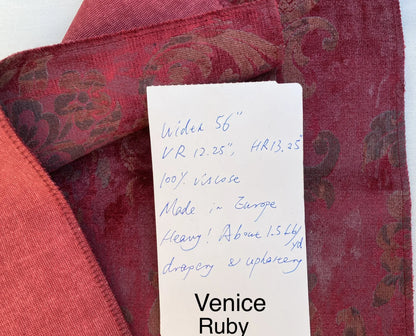 Width 56"
VR 12.25", HR 13.25"
100% viscose
Made in Europe
Heavy! About 1.5 Lb/yd
drapery & upholstery
Venice
Ruby